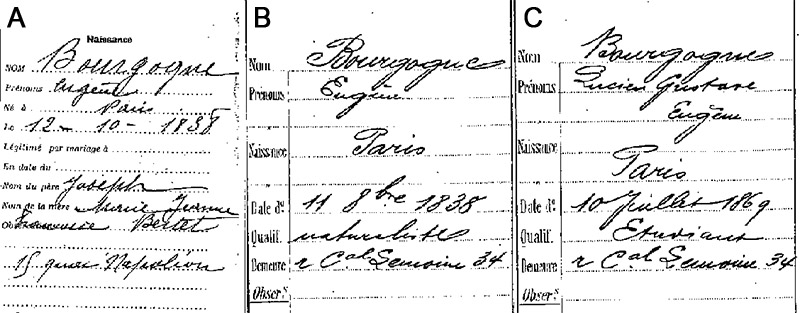 A
Naissance
NOM Bourgogne
Prénoms Eugène
Né à Paris
Le 12 - 10 - 1838
Légitimé par mariage à
En date du
Nom du père Joseph
Nom de la mère Marie Jeanne
Obs Françoise Bertet
15 quai Napoléon
B
Nom Bourgogne
Prénoms Eugène
Naissance Paris
Date dº 11 8bre 1838
Qualif. naturaliste
Demeure r Cal Lemoine 34
Obser.s
C
Nom Bourgogne
Prénoms Lucien Gustave
Eugène
Naissance
Paris
Date dº 10 Juillet 1869
Qualif. Etudiant
Demeure r Cal Lemoine 34
Obser.s